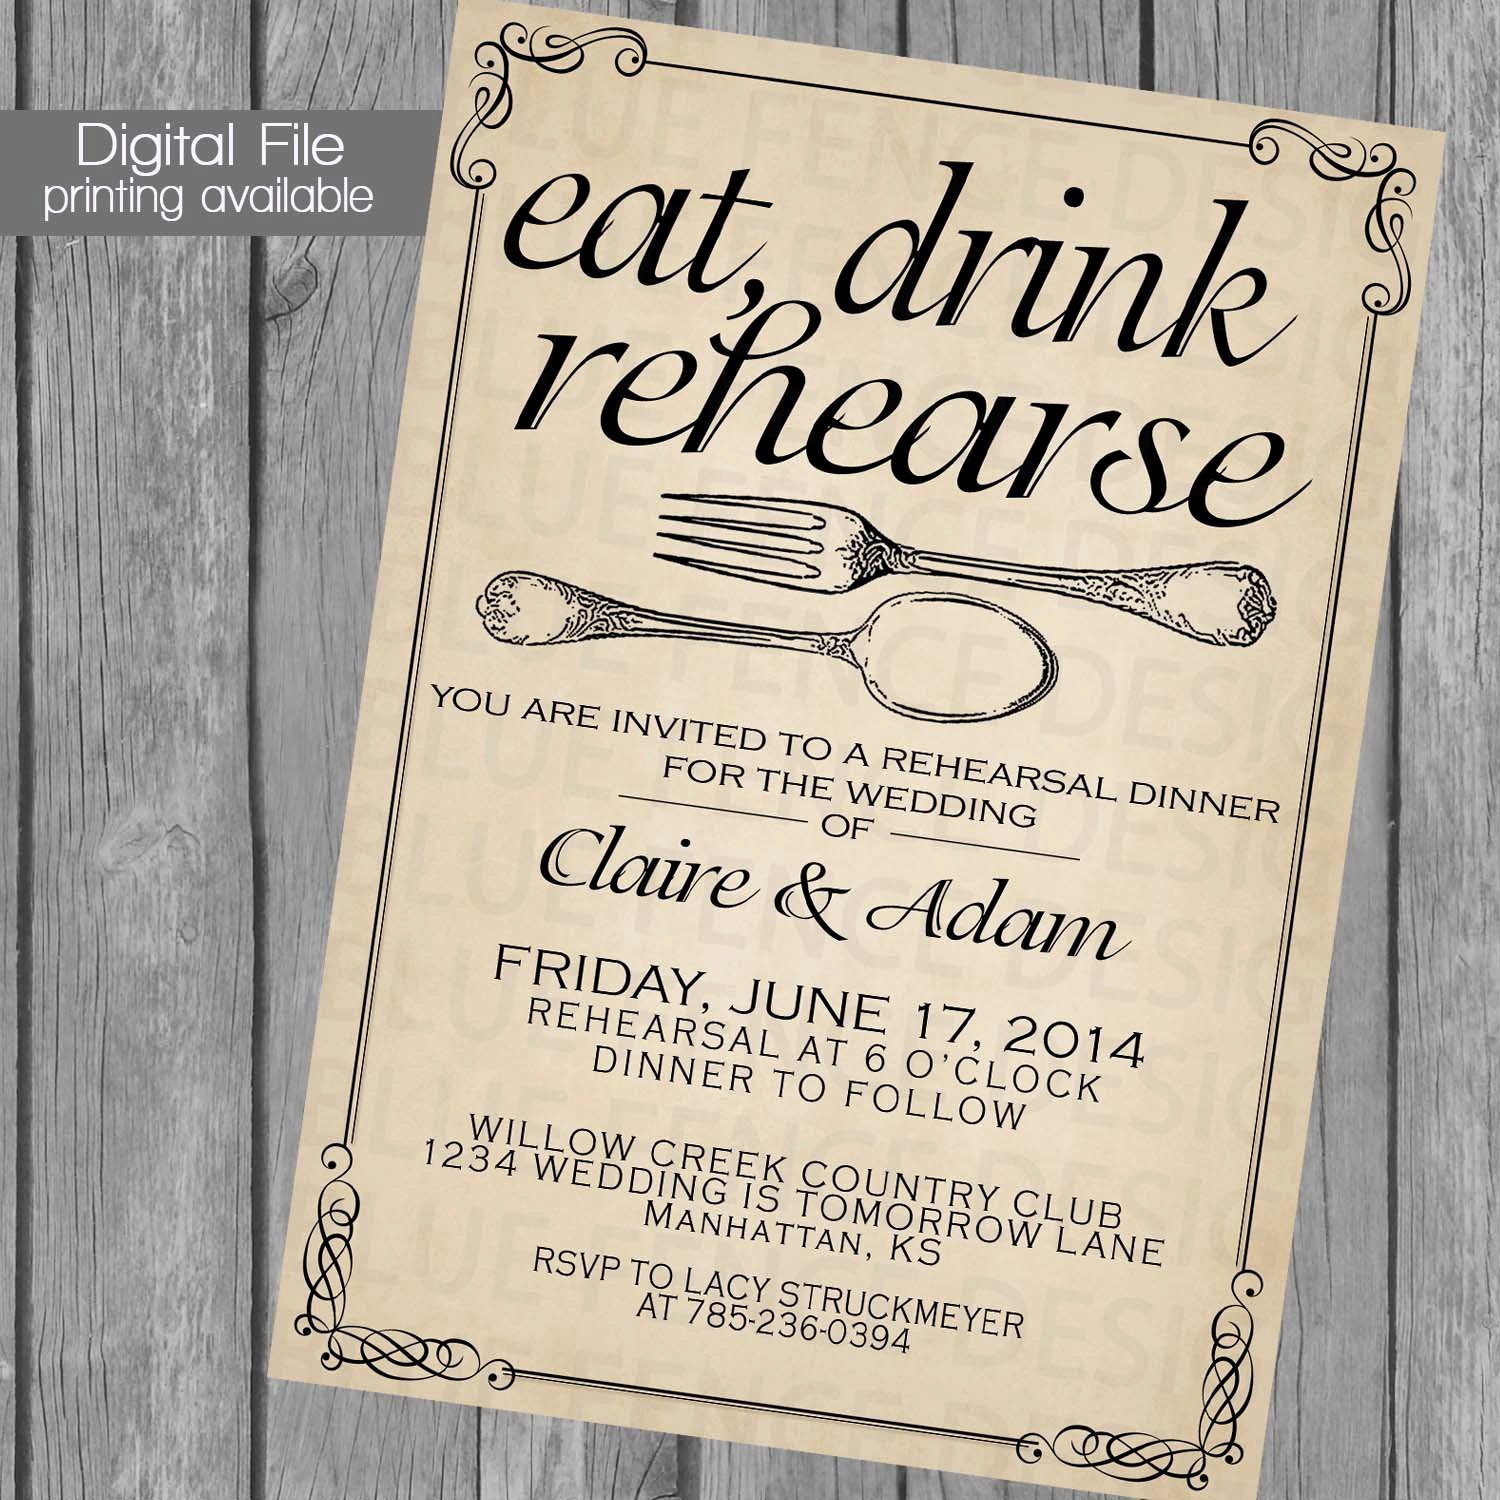 Digital File
printing available
eat, drink
rehearse
YOU ARE INVITED TO A REHEARSAL DINNER
FOR THE WEDDING
OF
Claire & Adam
FRIDAY, JUNE 17, 2014
REHEARSAL AT 6 O'CLOCK
DINNER TO FOLLOW
WILLOW CREEK COUNTRY CLUB
1234 WEDDING IS TOMORROW LANE
MANHATTAN, KS
RSVP TO LACY STRUCKMEYER
AT 785-236-0394
BLUE FENCE DESIGN
BLUE FENCE DESIGN
BLUE FENCE DESIGN
BLUE FENCE DESIGN
BLUE FENCE DESIGN
BLUE FENCE DESIGN